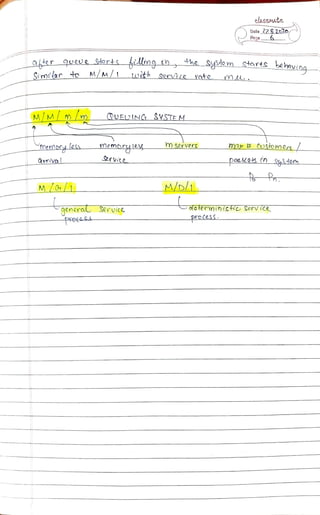 classmate
Date
Page 6
after queue starts filling in, the system starts behaving
similar to M/M/1 with service rate mu.
M/M/m/m QUEUING SYSTEM
memoryless memoryless m servers max # customers /
arrival service packets in system
P₀ Pₙ.
M/G/1 M/D/1
general service deterministic service
process process.